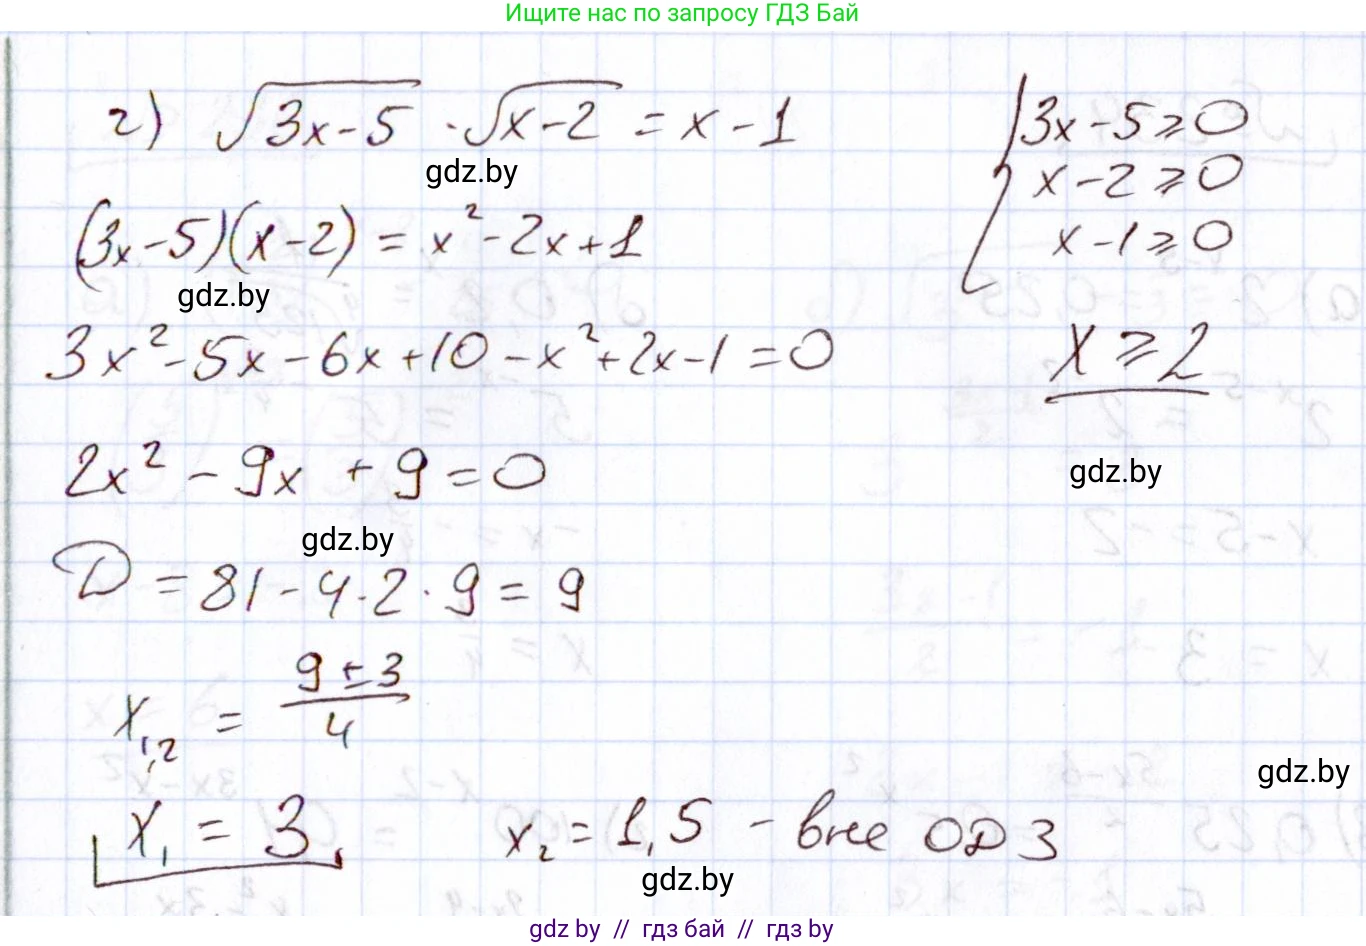 Ищите нас по запросу ГДЗ Бай
г) √(3x-5) · √(x-2) = x - 1
gdz.by
{ 3x - 5 ⩾ 0
x - 2 ⩾ 0
x - 1 ⩾ 0
(3x - 5)(x - 2) = x² - 2x + 1
gdz.by
3x² - 5x - 6x + 10 - x² + 2x - 1 = 0
x ⩾ 2
2x² - 9x + 9 = 0
gdz.by
gdz.by
D = 81 - 4 · 2 · 9 = 9
x₁,₂ = (9 ± 3)/4
gdz.by
x₁ = 3, x₂ = 1,5 - вне ОДЗ
gdz.by
gdz by // гдз бай // гдз by